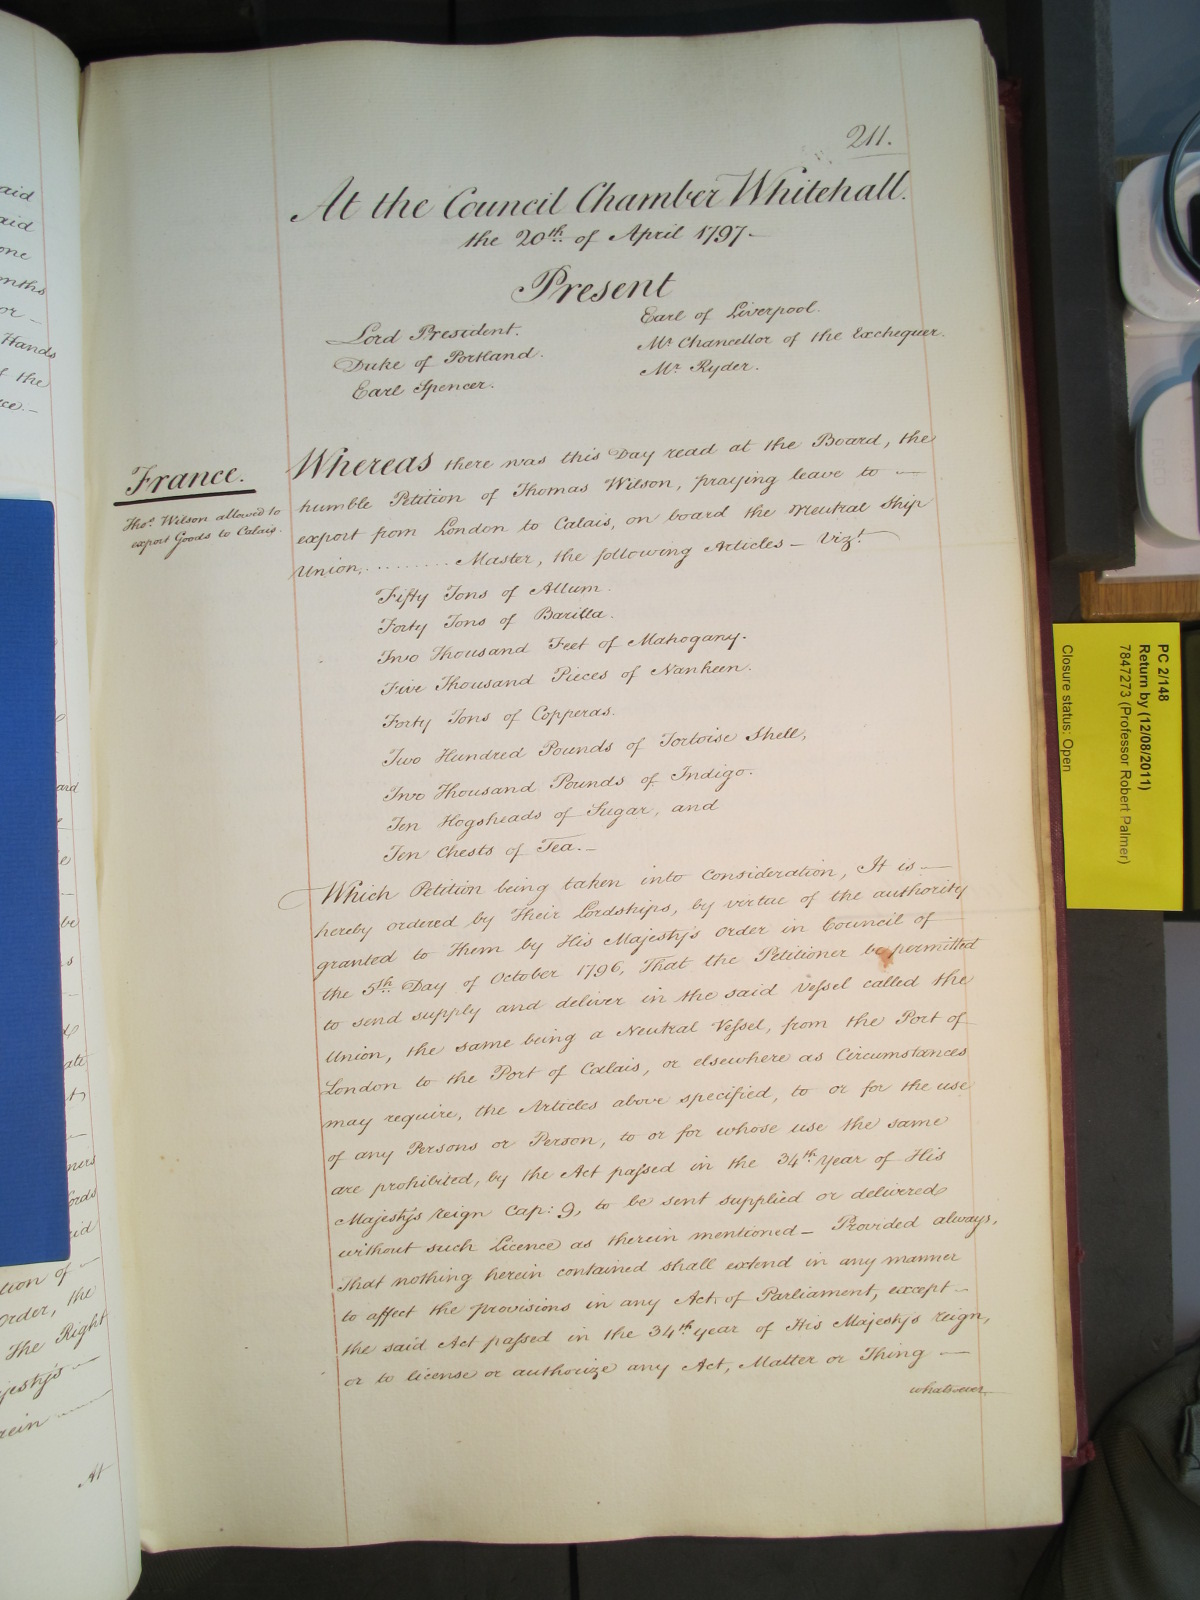 aid
aid
one
onths
or —
Hands
f the
ce. —
ard
be
s
ate
ners
ords
id
tion of —
Order, the
The Right
jesty's —
rein —
At
211.
At the Council Chamber Whitehall.
the 20th of April 1797—
Present
Lord President.
Duke of Portland.
Earl Spencer.
Earl of Liverpool.
Mr Chancellor of the Exchequer.
Mr Ryder.
France.
Thos. Wilson allowed to
export Goods to Calais.
Whereas there was this Day read at the Board, the
humble Petition of Thomas Wilson, praying leave to —
export from London to Calais, on board the Neutral Ship
Union, ......... Master, the following Articles — Vizt.
Fifty Tons of Allum.
Forty Tons of Barilla.
Two Thousand Feet of Mahogany.
Five Thousand Pieces of Nankeen.
Forty Tons of Copperas.
Two Hundred Pounds of Tortoise Shell,
Two Thousand Pounds of Indigo.
Ten Hogsheads of Sugar, and
Ten Chests of Tea. —
Which Petition being taken into Consideration, It is —
hereby ordered by Their Lordships, by virtue of the authority
granted to Them by His Majesty's Order in Council of
the 5th Day of October 1796, That the Petitioner be permitted
to send supply and deliver in the said Vessel called the
Union, the same being a Neutral Vessel, from the Port of
London to the Port of Calais, or elsewhere as Circumstances
may require, the Articles above specified, to or for the use
of any Persons or Person, to or for whose use the same
are prohibited, by the Act passed in the 34th year of His
Majesty's reign Cap: 9, to be sent supplied or delivered
without such Licence as therein mentioned — Provided always,
That nothing herein contained shall extend in any manner
to affect the provisions in any Act of Parliament, except —
the said Act passed in the 34th year of His Majesty's reign,
or to license or authorize any Act, Matter or Thing —
whatsoever
PC 2/148
Return by (12/08/2011)
7847273 (Professor Robert Palmer)
Closure status: Open